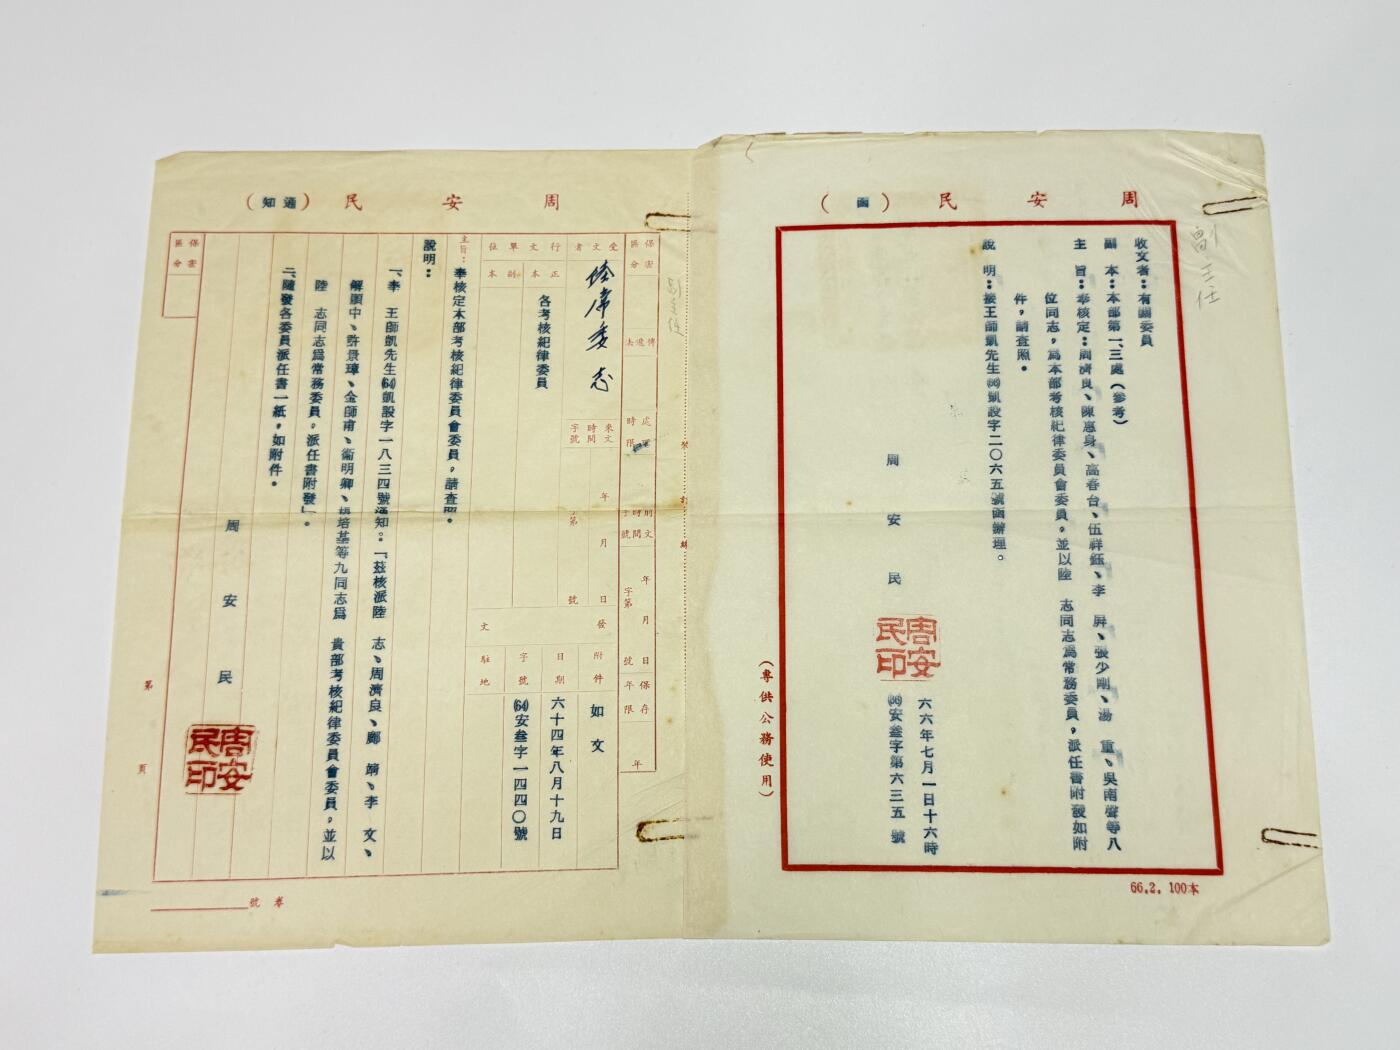 副主任
周安民（函）
收文者：有關委員
副　本：本部第一、三處（參考）
主　旨：奉核定：周濟良、陳惠身、高春台、伍祥鈺、李　屏、張少剛、湯　重、吳南聲等八
位同志，為本部考核紀律委員會委員，並以陸　志同志為常務委員，派任書附發如附
件，請查照。
說　明：接王師凱先生(66)凱設字二〇六五號函辦理。
周安民
周安民印
六六年七月一日十六時
(66)安叁字第六三五號
（專供公務使用）
66.2. 100本
周安民（通知）
保密區分
傳遞法
處理時限
附文時間字號
年月日
字第號
保存年限
年
受文者
陸常委志
來文時間字號
年月日
字第號
行文單位
正本
各考核紀律委員
副本
發文
附件
如文
日期
六十四年八月十九日
字號
(64)安叁字一四四〇號
駐地
主旨：奉核定本部考核紀律委員會委員，請查照。
說明：
一、奉　王師凱先生(64)凱設字一八三四號通知：「茲核派陸　志、周濟良、鄺　靖、李　文、
解頤中、許景璋、金師甫、衞明卿、培基等九同志為　貴部考核紀律委員會委員，並以
陸　志同志為常務委員，派任書附發」。
二、隨發各委員派任書一紙，如附件。
周安民
周安民印
保密區分
裝訂線
第頁
卷號